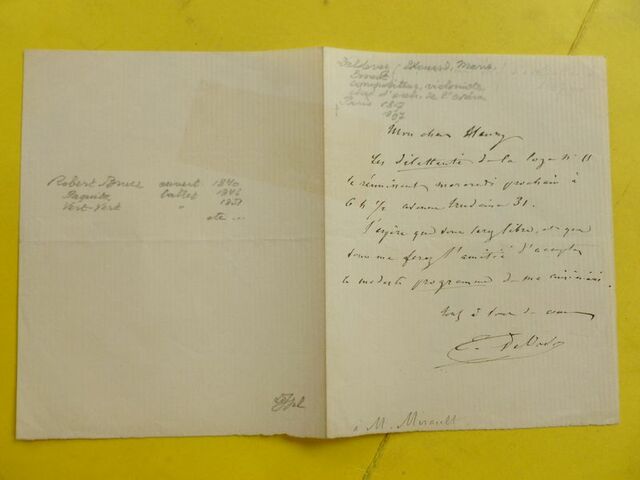 Robert Bruce ouvert. 1840
Paquita ballet 1846
Vert-Vert " 1851
etc ...
Deldevez (Edouard, Marie
Ernest)
compositeur, violoniste
chef d'orch. de l'opéra
Paris 1817
1897
Mon cher Henry
Les dilettanti de la loge n° 11
se réunissent mercredi prochain à
6 h 1/2 avenue trudaine 31.
J'espère que vous serez libre, et que
vous me ferez l'amitié d'accepter
le modeste programme de ma cuisinière.
Tout à vous de cœur
E. Deldevez
à M.